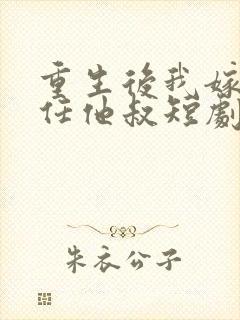 重生後我嫁
任他叔短劇
朱衣公子